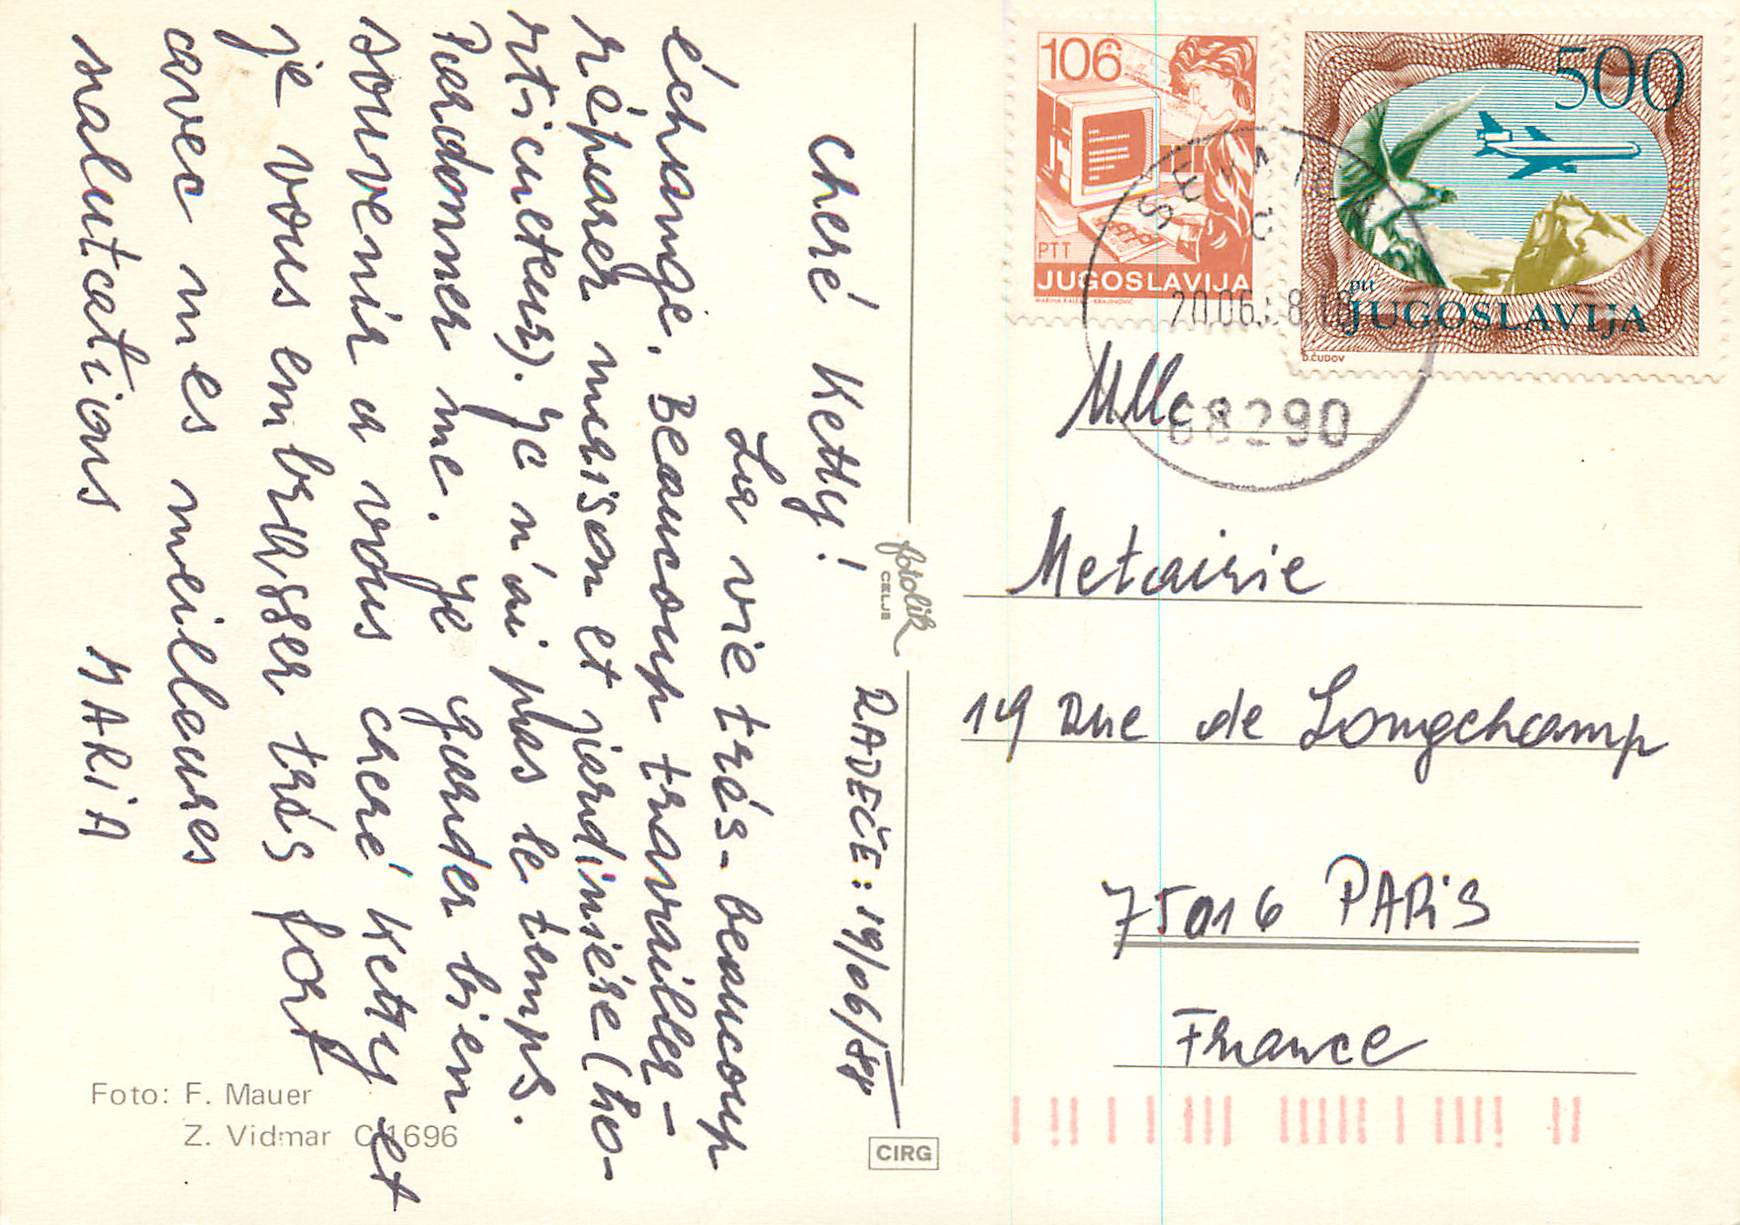 RADEČE: 19/06/88
Cheré Ketty!
La vie trés-beaucoup
échange. Beaucoup travailler-
réparer maison et jardiniére (ho-
rticulteur). Je n'ai plus le temps.
Pardonner me. Je garder bien
souvenir a vous cheré Ketty et
je vous embrasser trés fort
avec mes meilleures
salutations MARIA
Foto: F. Mauer
Z. Vidmar C 1696
fotolik
CELJE
CIRG
106
PTT
JUGOSLAVIJA
500
ptt
JUGOSLAVIJA
D. ČUDOV
SEVNICA
20.06.88.18
68290
Mlle
Metairie
19 Rue de Longchamp
75016 PARIS
France